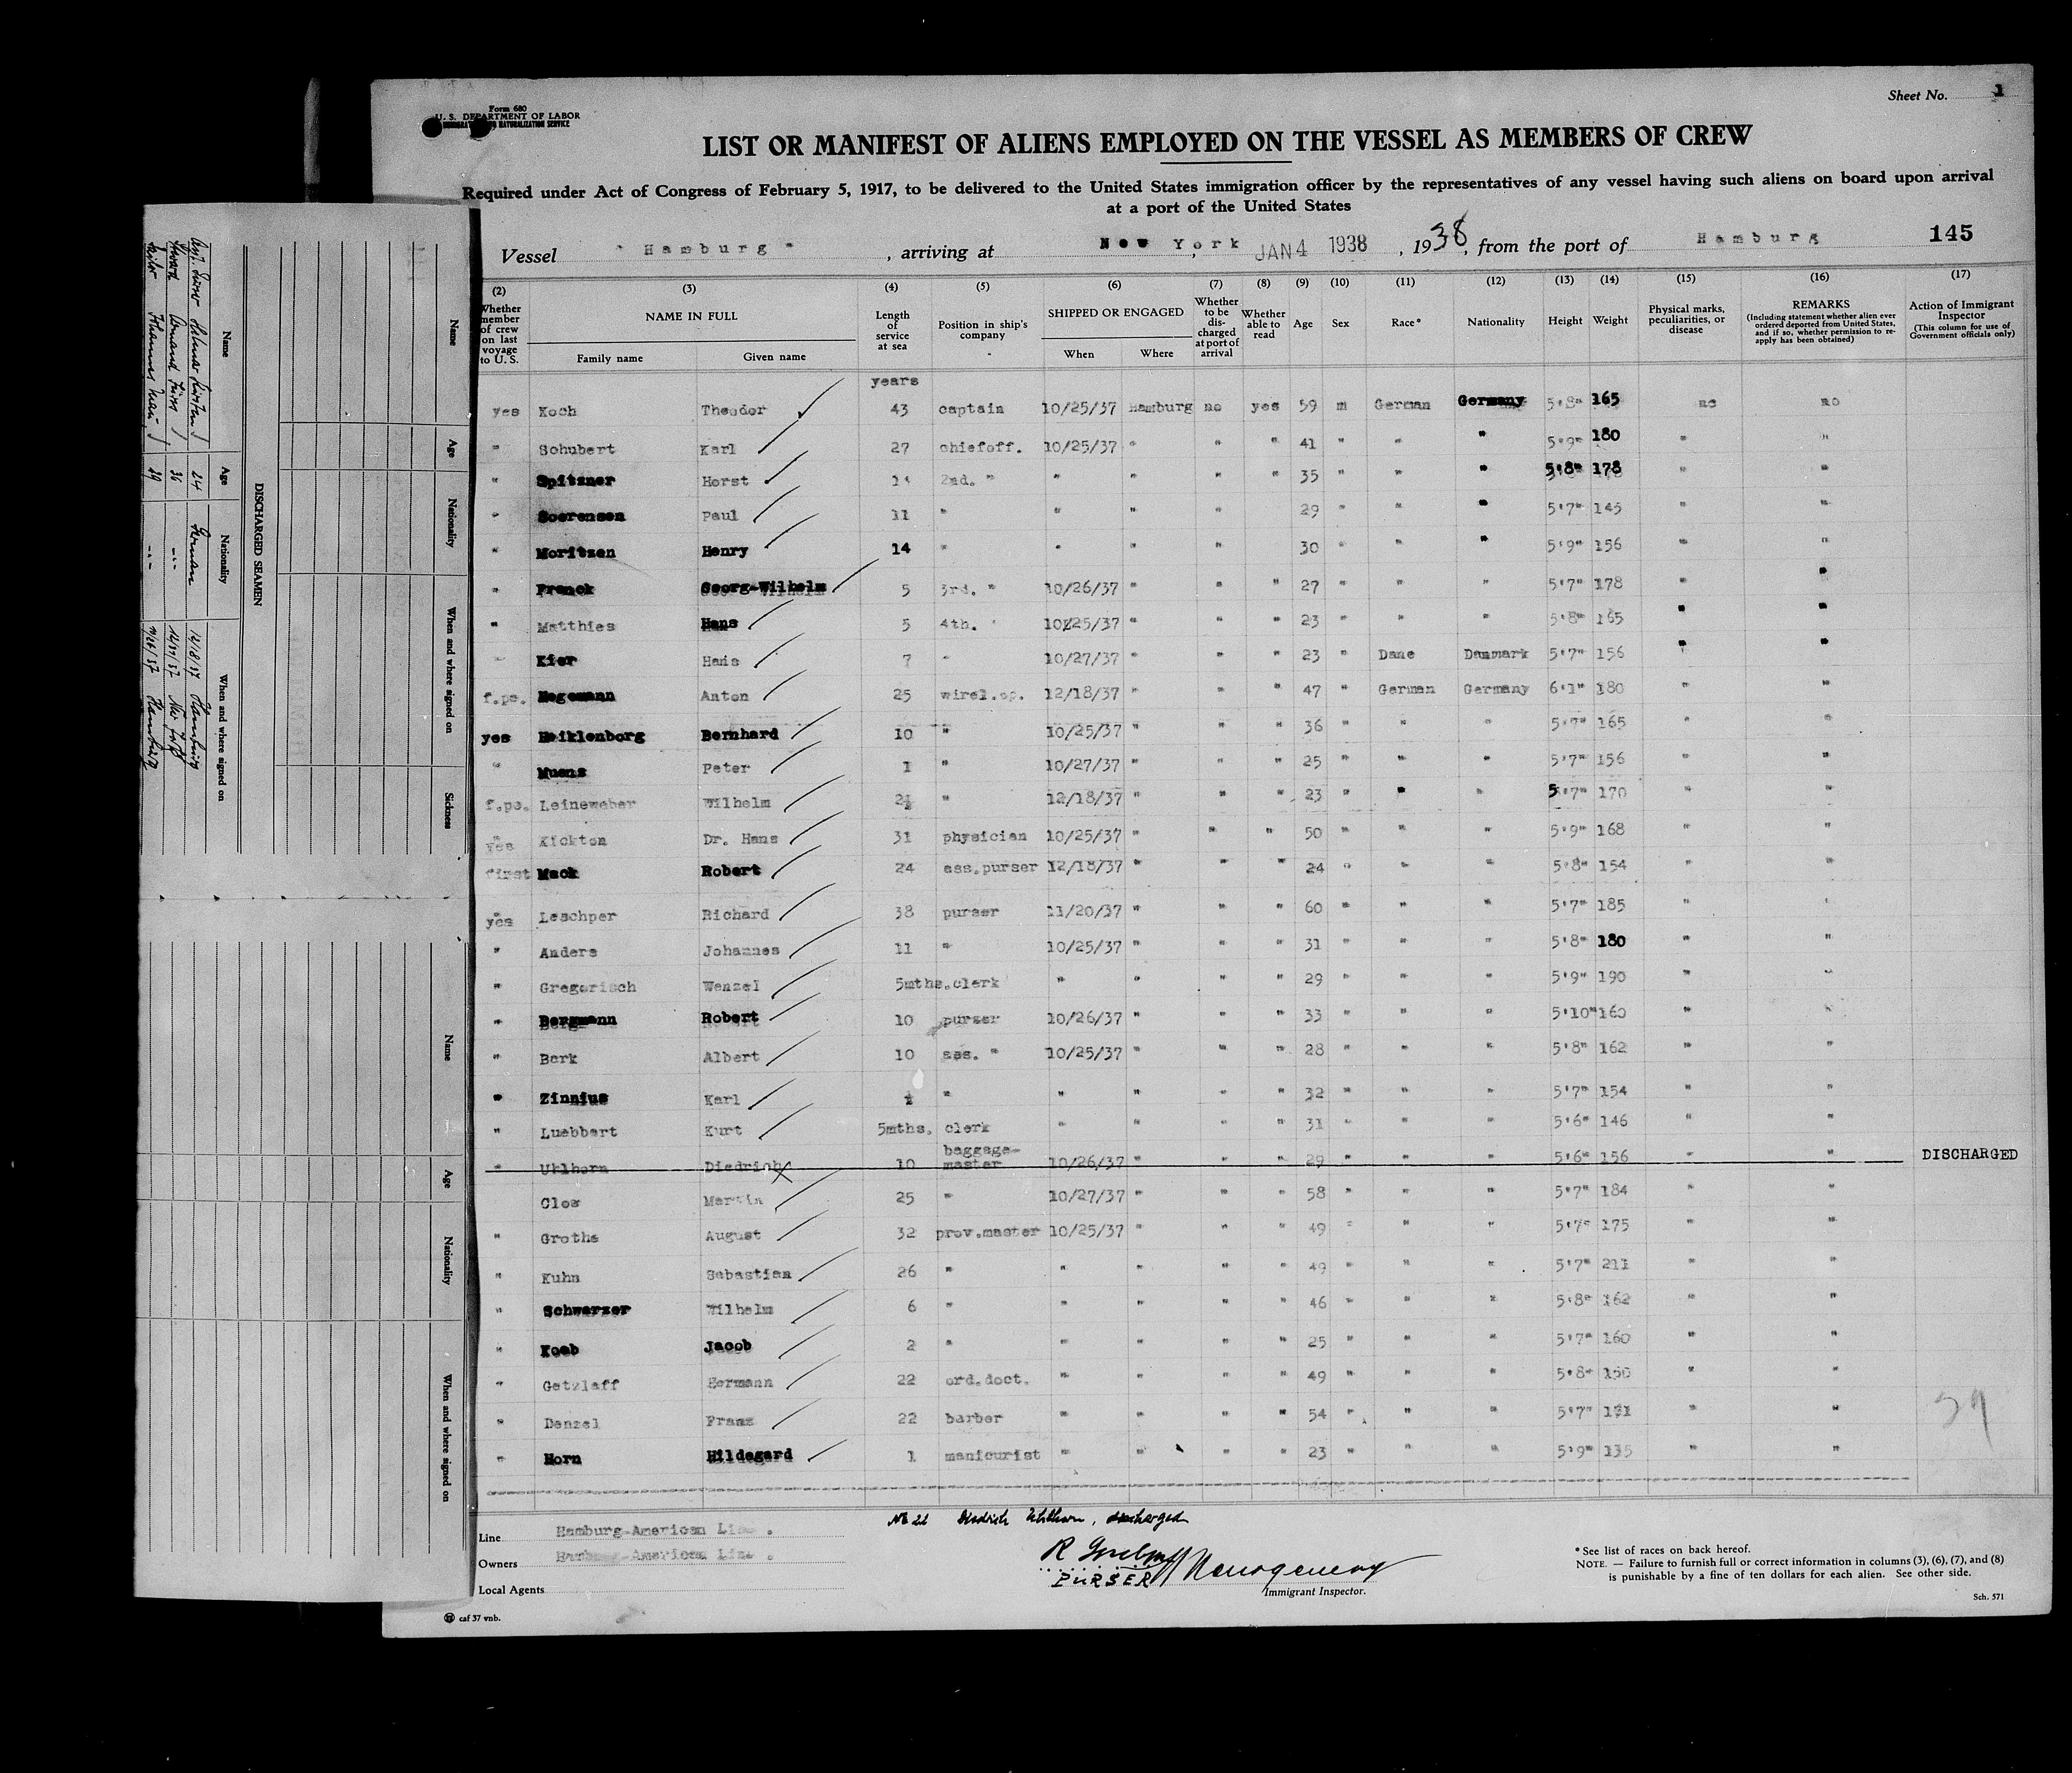 Form 680
U. S. DEPARTMENT OF LABOR
IMMIGRATION AND NATURALIZATION SERVICE
Sheet No. 1
LIST OR MANIFEST OF ALIENS EMPLOYED ON THE VESSEL AS MEMBERS OF CREW
Required under Act of Congress of February 5, 1917, to be delivered to the United States immigration officer by the representatives of any vessel having such aliens on board upon arrival
at a port of the United States
Vessel " Hamburg " , arriving at New York , JAN 4 1938 , 1938, from the port of Hamburg 145
(2) (3) (4) (5) (6) (7) (8) (9) (10) (11) (12) (13) (14) (15) (16) (17)
Whether member of crew on last voyage to U. S.
NAME IN FULL
Family name Given name
Length of service at sea
Position in ship's company
SHIPPED OR ENGAGED
When Where
Whether to be discharged at port of arrival
Whether able to read
Age
Sex
Race*
Nationality
Height
Weight
Physical marks, peculiarities, or disease
REMARKS
(Including statement whether alien ever ordered deported from United States, and if so, whether permission to reapply has been obtained)
Action of Immigrant Inspector
(This column for use of Government officials only)
years
yes Koch Theodor 43 captain 10/25/37 Hamburg no yes 59 m German Germany 5'8" 165 no no
" Schubert Karl 27 chiefoff. 10/25/37 " " " 41 " " " 5'9" 180 " "
" Spitzner Horst 2nd. " " " " " 35 " " " 5'8" 178 " "
" Soerensen Paul 11 " " " " 29 " " " 5'7" 145 " "
" Moritzen Henry 14 " " " " 30 " " " 5'9" 156 " "
" Franck Georg-Wilhelm 5 3rd. " 10/26/37 " " " 27 " " " 5'7" 178 " "
" Matthies Hans 5 4th. " 10/25/37 " " " 23 " " " 5'8" 165 " "
" Kier Hans 7 " 10/27/37 " " " 23 " Dane Danmark 5'7" 156 " "
f.ps. Hegemann Anton 25 wirel.op. 12/18/37 " " " 47 " German Germany 6'1" 180 " "
yes Heiklenborg Bernhard 10 " 10/25/37 " " " 36 " " " 5'7" 165 " "
" Muens Peter 1 " 10/27/37 " " " 25 " " " 5'7" 156 " "
f.ps. Leineweber Wilhelm 2½ " 12/18/37 " " " 23 " " " 5'7" 170 " "
yes Kickton Dr. Hans 31 physician 10/25/37 " " 50 " " " 5'9" 168 " "
first Mack Robert 24 ass.purser 12/18/37 " " " 24 " " " 5'8" 154 " "
yes Leschper Richard 38 purser 11/20/37 " " " 60 " " " 5'7" 185 " "
" Anders Johannes 11 " 10/25/37 " " " 31 " " " 5'8" 180 " "
" Gregorisch Wenzel 5mths. clerk " " " " 29 " " " 5'9" 190 " "
" Bergmann Robert 10 purser 10/26/37 " " " 33 " " " 5'10" 160 " "
" Berk Albert 10 ass. " 10/25/37 " " " 28 " " " 5'8" 162 " "
" Zinnius Karl ½ " " " " " 32 " " " 5'7" 154 " "
" Luebbert Kurt 5mths. clerk " " " " 31 " " " 5'6" 146 " "
" Uhlhorn Diedrich 10 baggage-master 10/26/37 " " " 29 " " " 5'6" 156 " " DISCHARGED
Clos Martin 25 " 10/27/37 " " " 58 " " " 5'7" 184 " "
" Grothe August 32 prov.master 10/25/37 " " " 49 " " " 5'7" 175 " "
" Kuhn Sebastian 26 " " " " " 49 " " " 5'7" 211 " "
" Schwarzer Wilhelm 6 " " " " " 46 " " " 5'8" 162 " "
" Koeb Jacob 2 " " " " " 25 " " " 5'7" 160 " "
" Getzlaff Hermann 22 ord.doct. " " " " 49 " " " 5'8" 150 " "
" Denzel Franz 22 barber " " " " 54 " " " 5'7" " "
" Horn Hildegard 1 manicurist " " " " 23 " " " 5'9" 135 " "
29
Line Hamburg-American Line.
Owners Hamburg-American Line.
Local Agents
№ 22 Diedrich Uhlhorn, discharged
PURSER
Immigrant Inspector.
* See list of races on back hereof.
NOTE. — Failure to furnish full or correct information in columns (3), (6), (7), and (8)
is punishable by a fine of ten dollars for each alien. See other side.
Sch. 571
caf 37 vnb.
DISCHARGED SEAMEN
Name Age Nationality When and where signed on
24 German 12/18/37 Hamburg
36 -"- New York
Johannes 29 -"- Hamburg
Name Age Nationality When and where signed on Sickness
Name Age Nationality When and where signed on